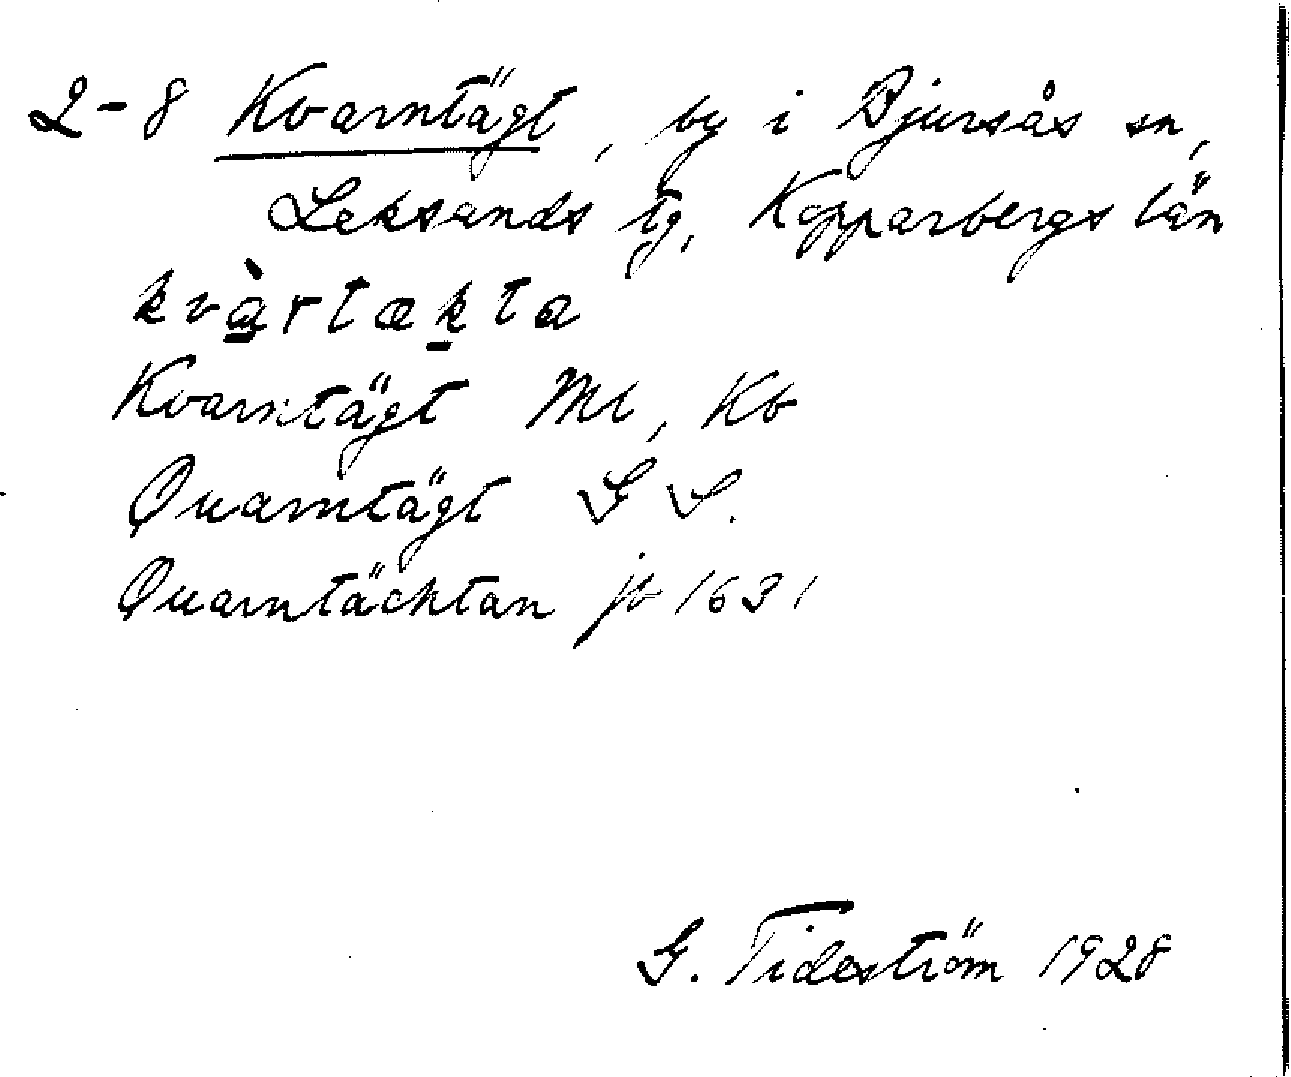 2-8 Kvarntägt, by i Bjursås sn,
Leksands tg, Kopparbergs län
kvàrtækta
Kvarntägt Ml, Kb
Quarntägt GS.
Quarntächtan jb 1631
G. Tideström 1928